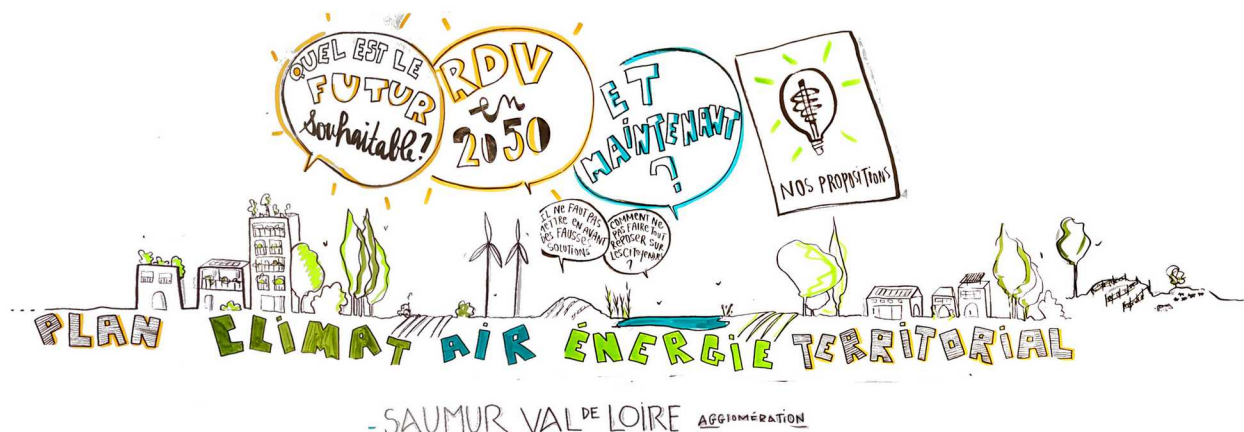 QUEL EST LE
FUTUR
Souhaitable?
RDV
en
2050
ET
MAINTENANT
?
NOS PROPOSITIONS
IL NE FAUT PAS
METTRE EN AVANT
DES FAUSSES
SOLUTIONS
COMMENT NE
PAS FAIRE TOUT
REPOSER SUR
LES CITOYENNES
?
PLAN CLIMAT AIR ÉNERGIE TERRITORIAL
- SAUMUR VAL DE LOIRE AGGLOMÉRATION